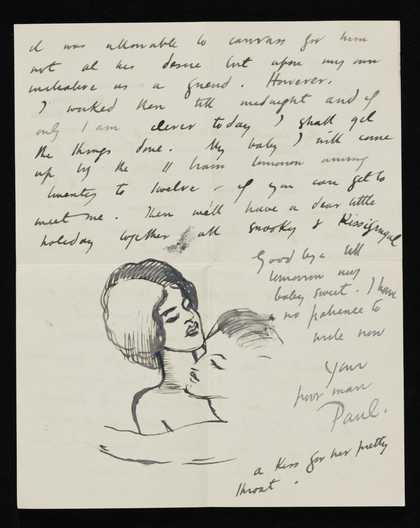 it was allowable to canvass for him
not at his desire but upon my own
initiative as a friend. However.
I worked then till midnight and if
only I am clever today I shall get
the things done. My baby I will come
up by the 11 train tomorrow arriving
twenty to twelve - if you can get to
meet me. Then we'll have a dear little
holiday together all snooky &
Good bye till
tomorrow my
baby sweet. I have
no patience to
write now
Your
poor man
Paul.
a kiss for her pretty
throat.